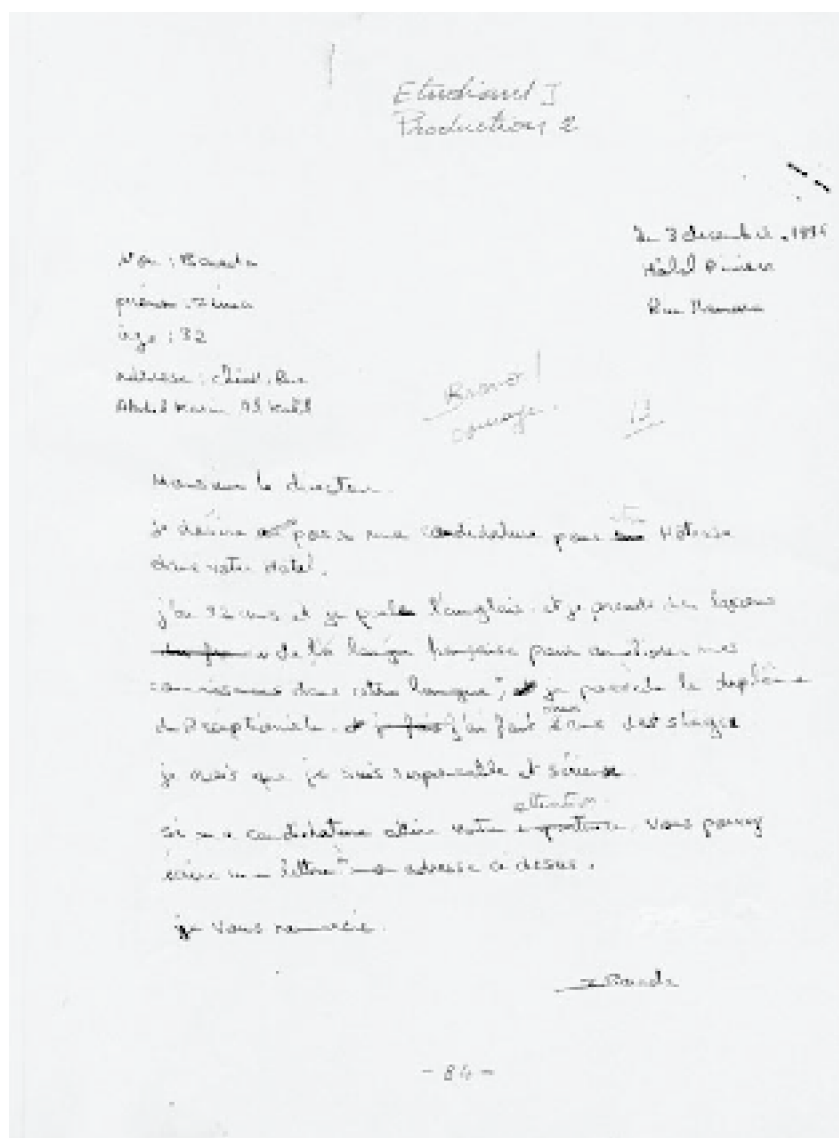 Etudiant I
Production 2
Le 3 décembre, 199
Nom :
Hôtel
prénom :
Rue
âge : 32
adresse : Rue
Abdel Karim
Bravo !
courage. 13
Monsieur le directeur.
je désire poser ma candidature pour être Hôtesse
dans votre hotel.
j'ai 32 ans et je parle l'anglais et je prends des leçons
de la langue française pour améliorer mes
connaissances dans votre langue, et je possède le diplôme
de Réceptioniste. et j'ai fait aussi des stages
je crois que je suis responsable et sérieuse.
si ma candidature attire votre attention. vous pouvez
écrire une lettre à mon adresse ci desus.
je vous remercie.
- 84 -